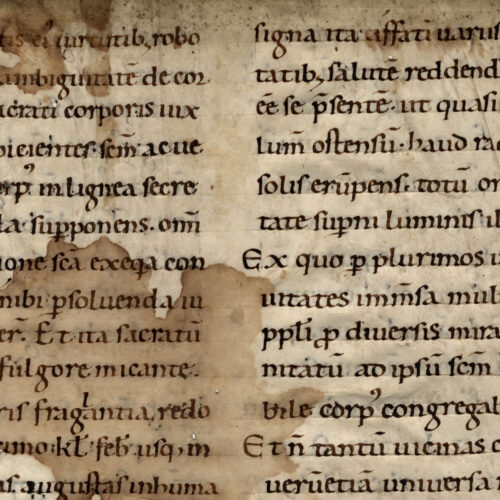 tis ei uirtutib, robo
ambiguitatē de cor
sacrati corporis uix
picientes. scm̄ ac ue
corp' in lignea secre
ta supponens. om̄i
one scā exeq̄a con
nibi p̄soluenda iu
er̄. Et ita sacratū
fulgore micante.
ris fragl̄antia, redo
kl̄. feb̄. usq, in
augustas inhuma
signa ita affati uarus
tatib, salutē reddend
ēe se p̄sentē. ut quasi
lum̄ ostensū. haud rad
solis erūpens. totū or
tate sup̄ni luminis il
Ex quo p̄ plurimos u
uitates im̄ēsa mul
ppl̄i p̄ diuersis mira
nitatū ad ipsū scm̄
bile corp' congregab
Et n̄ tantū uicinas c
uerūetiā uniuersa